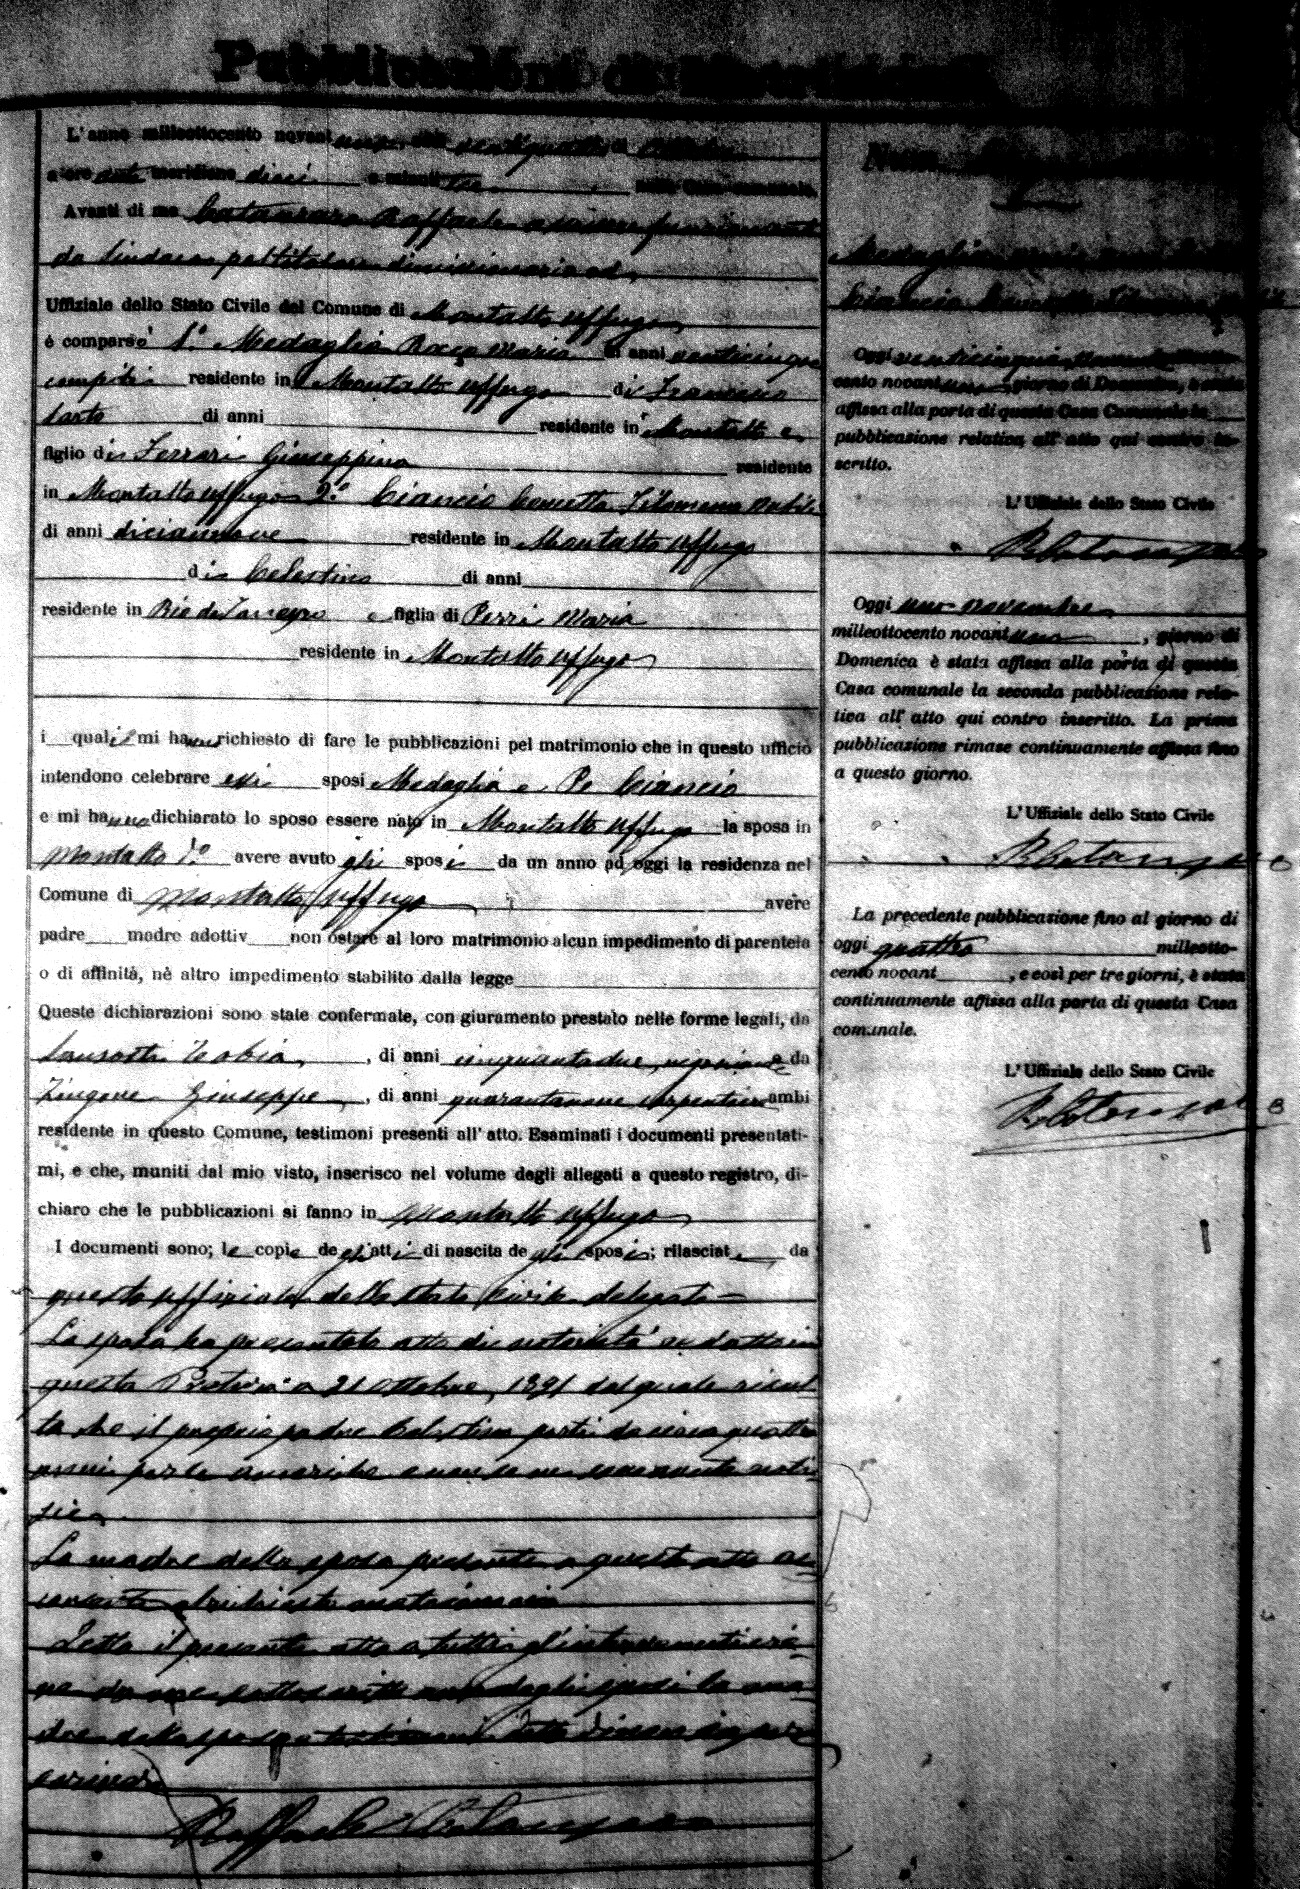 Pubblicazioni di Matrimonio
L'anno milleottocento novantuno, addì ventiquattro di Ottobre
a ore anti meridiane dieci e minuti tre, nella Casa comunale.
Avanti di me Catanzaro Raffaele assessore funzionante
da Sindaco pel titolare dimissionario ed,
Uffiziale dello Stato Civile del Comune di Montalto Uffugo
è comparso 1.º Medaglia Rocco Maria di anni venticinque
compiti residente in Montalto Uffugo di Francesco
sarto di anni residente in Montalto e
figlio di Ferrari Giuseppina residente
in Montalto Uffugo 2.º Ciancio Concetta Filomena nubile
di anni diciannove residente in Montalto Uffugo
di Celestino di anni
residente in Rio de Janeyro e figlia di Perri Maria
residente in Montalto Uffugo
i quali mi hanno richiesto di fare le pubblicazioni pel matrimonio che in questo ufficio
intendono celebrare essi sposi Medaglia e Ciancio
e mi hanno dichiarato lo sposo essere nato in Montalto Uffugo la sposa in
Montalto avere avuto gli sposi da un anno ad oggi la residenza nel
Comune di Montalto Uffugo avere
padre madre adottiv non ostare al loro matrimonio alcun impedimento di parentela
o di affinità, nè altro impedimento stabilito dalla legge
Queste dichiarazioni sono state confermate, con giuramento prestato nelle forme legali, da
Tobia, di anni cinquantadue, da
Zingone Giuseppe, di anni quarantanove ambi
residente in questo Comune, testimoni presenti all'atto. Esaminati i documenti presentati-
mi, e che, muniti dal mio visto, inserisco nel volume degli allegati a questo registro, di-
chiaro che le pubblicazioni si fanno in Montalto Uffugo
I documenti sono; le copie degli atti di nascita degli sposi; rilasciate da
questo uffiziale dello stato civile delegato
La sposa ha presentato atto di notorietà redatto in
questa Pretura a 21 Ottobre, 1891 dal quale risul
ta che il proprio padre Celestino partì da circa quattro
anni per le Americhe e non se ne noti-
zie
La madre della sposa presente a questo atto ac-
consente al richiesto matrimonio
Letto il presente atto a tutti gl'intervenuti vie-
ne da me sottoscritto dagli sposi la ma-
dre della sposa e testimoni detto non sapere
scrivere
Raffaele Catanzaro
Num.
Medaglia
Ciancio Concetta Filomena
Oggi venticinque
cento novantuno giorno di Domenica, è stata
affissa alla porta di questa Casa Comunale la
pubblicazione relativa all'atto qui contro in-
scritto.
L'Uffiziale dello Stato Civile
R. Catanzaro
Oggi uno novembre
milleottocento novantuno, giorno di
Domenica è stata affissa alla porta di questa
Casa comunale la seconda pubblicazione rela-
tiva all'atto qui contro inscritto. La prima
pubblicazione rimase continuamente affissa fino
a questo giorno.
L'Uffiziale dello Stato Civile
R. Catanzaro
La precedente pubblicazione fino al giorno di
oggi quattro milleotto-
cento novant, e così per tre giorni, è stata
continuamente affissa alla porta di questa Casa
comunale.
L'Uffiziale dello Stato Civile
R. Catanzaro